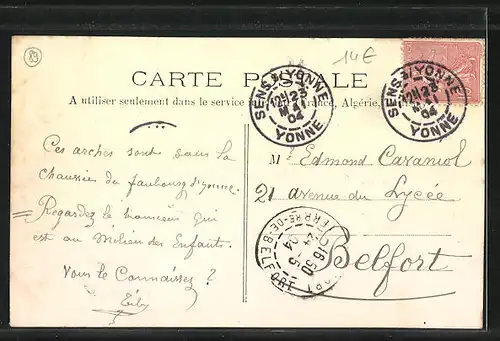 89
14€
CARTE POSTALE
A utiliser seulement dans le service France, Algérie,
SENS S/ YONNE
12H 23
MAI
04
YONNE
SENS S/ YONNE
23
MAI
04
YONNE
Ces arches sont sous la
chaussée du faubourg d'yonne.
Regardez le monsieur qui
est au Milieu des Enfants.
Vous le Connaissez ?
Mr Edmond Caramol
21 avenue du Lycée
Belfort
BELFORT
16 50
24 5
04